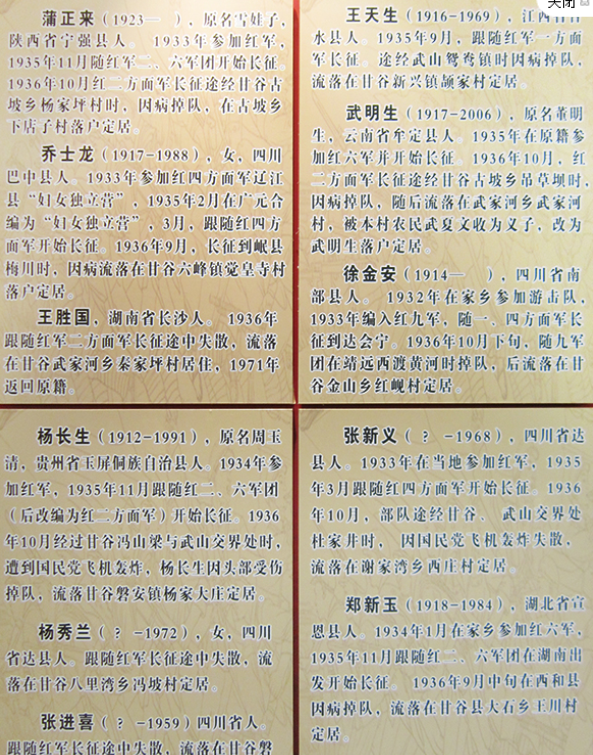 关闭
蒲正来(1923— ),原名雪娃子,
陕西省宁强县人。1933年参加红军,
1935年11月随红军二、六军团开始长征。
1936年10月红二方面军长征途经甘谷古
坡乡杨家坪村时,因病掉队,在古坡乡
下店子村落户定居。
乔士龙(1917-1988),女,四川
巴中县人。1933年参加红四方面军辽江
县“妇女独立营”,1935年2月在广元合
编为“妇女独立营”,3月,跟随红四方
面军开始长征。1936年9月,长征到岷县
梅川时,因病流落在甘谷六峰镇觉皇寺村
落户定居。
王胜国,湖南省长沙人。1936年
跟随红军二方面军长征途中失散,流落
在甘谷武家河乡秦家坪村居住,1971年
返回原籍。
王天生(1916-1969),江西省
水县人。1935年9月,跟随红军一方面
军长征。途经武山鸳鸯镇时因病掉队,
流落在甘谷新兴镇颉家村定居。
武明生(1917-2006),原名董明
生,云南省牟定县人。1935年在原籍参
加红六军并开始长征。1936年10月,红
二方面军长征途经甘谷古坡乡吊草坝时,
因病掉队,随后流落在武家河乡武家河
村,被本村农民武夏文收为义子,改为
武明生落户定居。
徐金安(1914— ),四川省南
部县人。1932年在家乡参加游击队,
1933年编入红九军,随一、四方面军长
征到达会宁。1936年10月下旬,随九军
团在靖远西渡黄河时掉队,后流落在甘
谷金山乡红岘村定居。
杨长生(1912-1991),原名周玉
清,贵州省玉屏侗族自治县人。1934年参
加红军,1935年11月跟随红二、六军团
(后改编为红二方面军)开始长征。1936
年10月经过甘谷冯山梁与武山交界处时,
遭到国民党飞机轰炸,杨长生因头部受伤
掉队,流落甘谷磐安镇杨家大庄定居。
杨秀兰(?-1972),女,四川
省达县人。跟随红军长征途中失散,流
落在甘谷八里湾乡冯坡村定居。
张进喜(?-1959)四川省人。
跟随红军长征途中失散,流落在甘谷磐
张新义(?-1968),四川省达
县人。1933年在当地参加红军,1935
年3月跟随红四方面军开始长征。1936
年10月,部队途经甘谷、武山交界处
杜家井时,因国民党飞机轰炸失散,
流落在谢家湾乡西庄村定居。
郑新玉(1918-1984),湖北省宣
恩县人。1934年1月在家乡参加红六军,
1935年11月跟随二、六军团在湖南出
发开始长征。1936年9月中旬在西和县
因病掉队,流落在甘谷县大石乡王川村
定居。